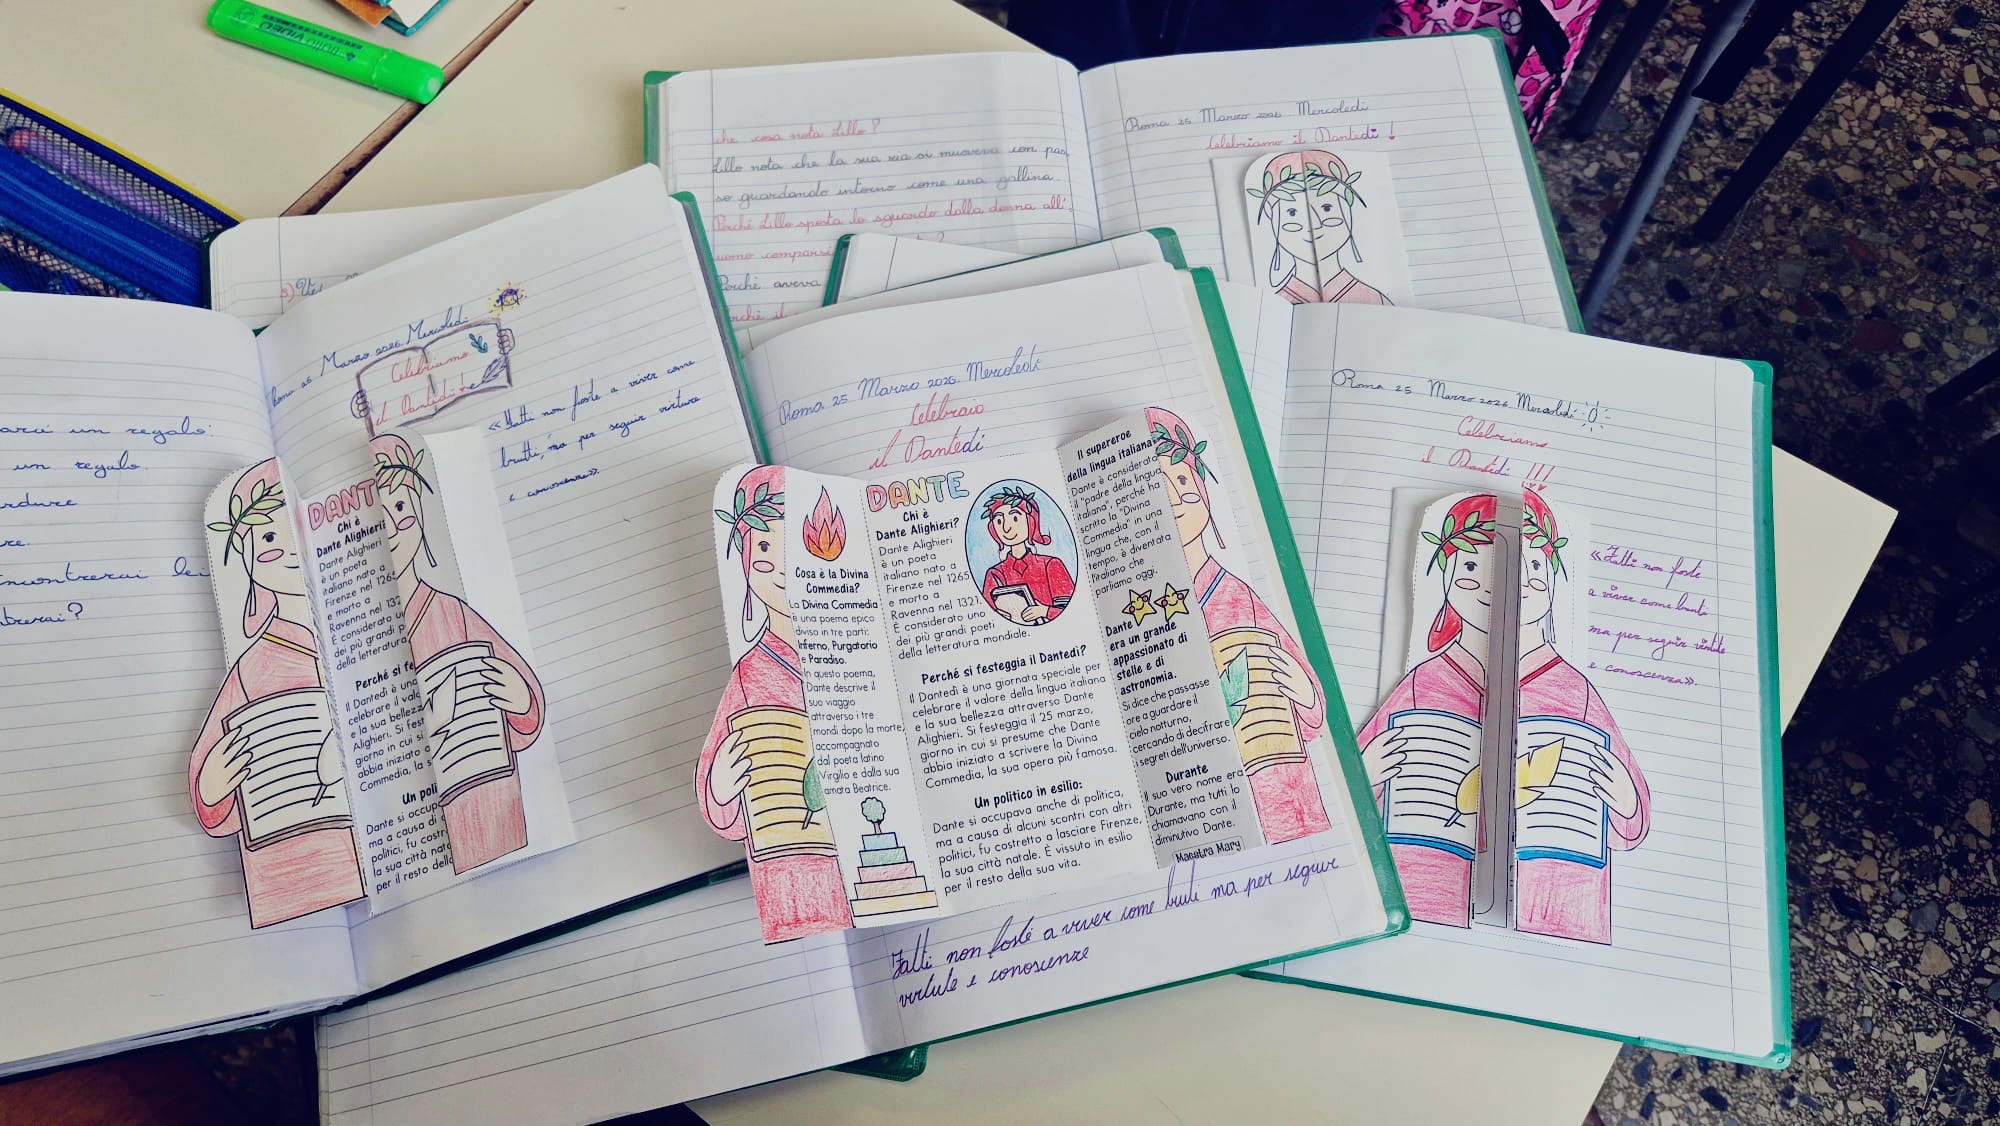 che cosa nota Lillo?
Lillo nota che la sua zia si muoveva con pas.
so guardando intorno come una gallina.
Perché Lillo sposta lo sguardo dalla donna all'
uomo comparsi
Perché aveva
Roma 25 Marzo 2026 Mercoledì
Celebriamo il Dantedì!
arai un regalo:
un regalo.
incontrerai lei
Roma 25 Marzo 2026. Mercoledì
Celebriamo
il Dantedì
«Fatti non foste a viver come
brutti, ma per seguir virtute
e conoscenza».
DANT
Chi è
Dante Alighieri?
Dante Alighieri
è un poeta
italiano nato a
Firenze nel 1265
e morto a
Ravenna nel 132
È considerato u
dei più grandi p
della letteratura
Perché si fe
Il Dantedì è una
celebrare il valo
e la sua bellezz
Alighieri. Si fest
giorno in cui si
abbia iniziato a
Commedia, la s
Un poli
Dante si occupa
ma a causa di
politici, fu costre
la sua città nata
per il resto dell
Roma 25 Marzo 2026. Mercoledì
Celebraio
il Dantedì
Cosa è la Divina
Commedia?
La Divina Commedia
è una poema epico
diviso in tre parti:
Inferno, Purgatorio
e Paradiso.
In questo poema,
Dante descrive il
suo viaggio
attraverso i tre
mondi dopo la morte,
accompagnato
dal poeta latino
Virgilio e dalla sua
amata Beatrice.
DANTE
Chi è
Dante Alighieri?
Dante Alighieri
è un poeta
italiano nato a
Firenze nel 1265
e morto a
Ravenna nel 1321.
È considerato uno
dei più grandi poeti
della letteratura mondiale.
Perché si festeggia il Dantedì?
Il Dantedì è una giornata speciale per
celebrare il valore della lingua italiana
e la sua bellezza attraverso Dante
Alighieri. Si festeggia il 25 marzo,
giorno in cui si presume che Dante
abbia iniziato a scrivere la Divina
Commedia, la sua opera più famosa.
Un politico in esilio:
Dante si occupava anche di politica,
ma a causa di alcuni scontri con altri
politici, fu costretto a lasciare Firenze,
la sua città natale. È vissuto in esilio
per il resto della sua vita.
Il supereroe
della lingua italiana:
Dante è considerato
il "padre della lingua
italiana", perché ha
scritto la "Divina
Commedia" in una
lingua che, con il
tempo, è diventata
l'italiano che
parliamo oggi.
Dante
era un grande
appassionato di
stelle e di
astronomia.
Si dice che passasse
ore a guardare il
cielo notturno,
cercando di decifrare
i segreti dell'universo.
Durante
Il suo vero nome era
Durante, ma tutti lo
chiamavano con il
diminutivo Dante.
Maestra Mary
Fatti non foste a viver come bruti ma per seguir
virtute e conoscenze
Roma 25 Marzo 2026. Mercoledì
Celebriamo
il Dantedì !!!
«Fatti non foste
a viver come bruti
ma per seguir virtute
e conoscenza».